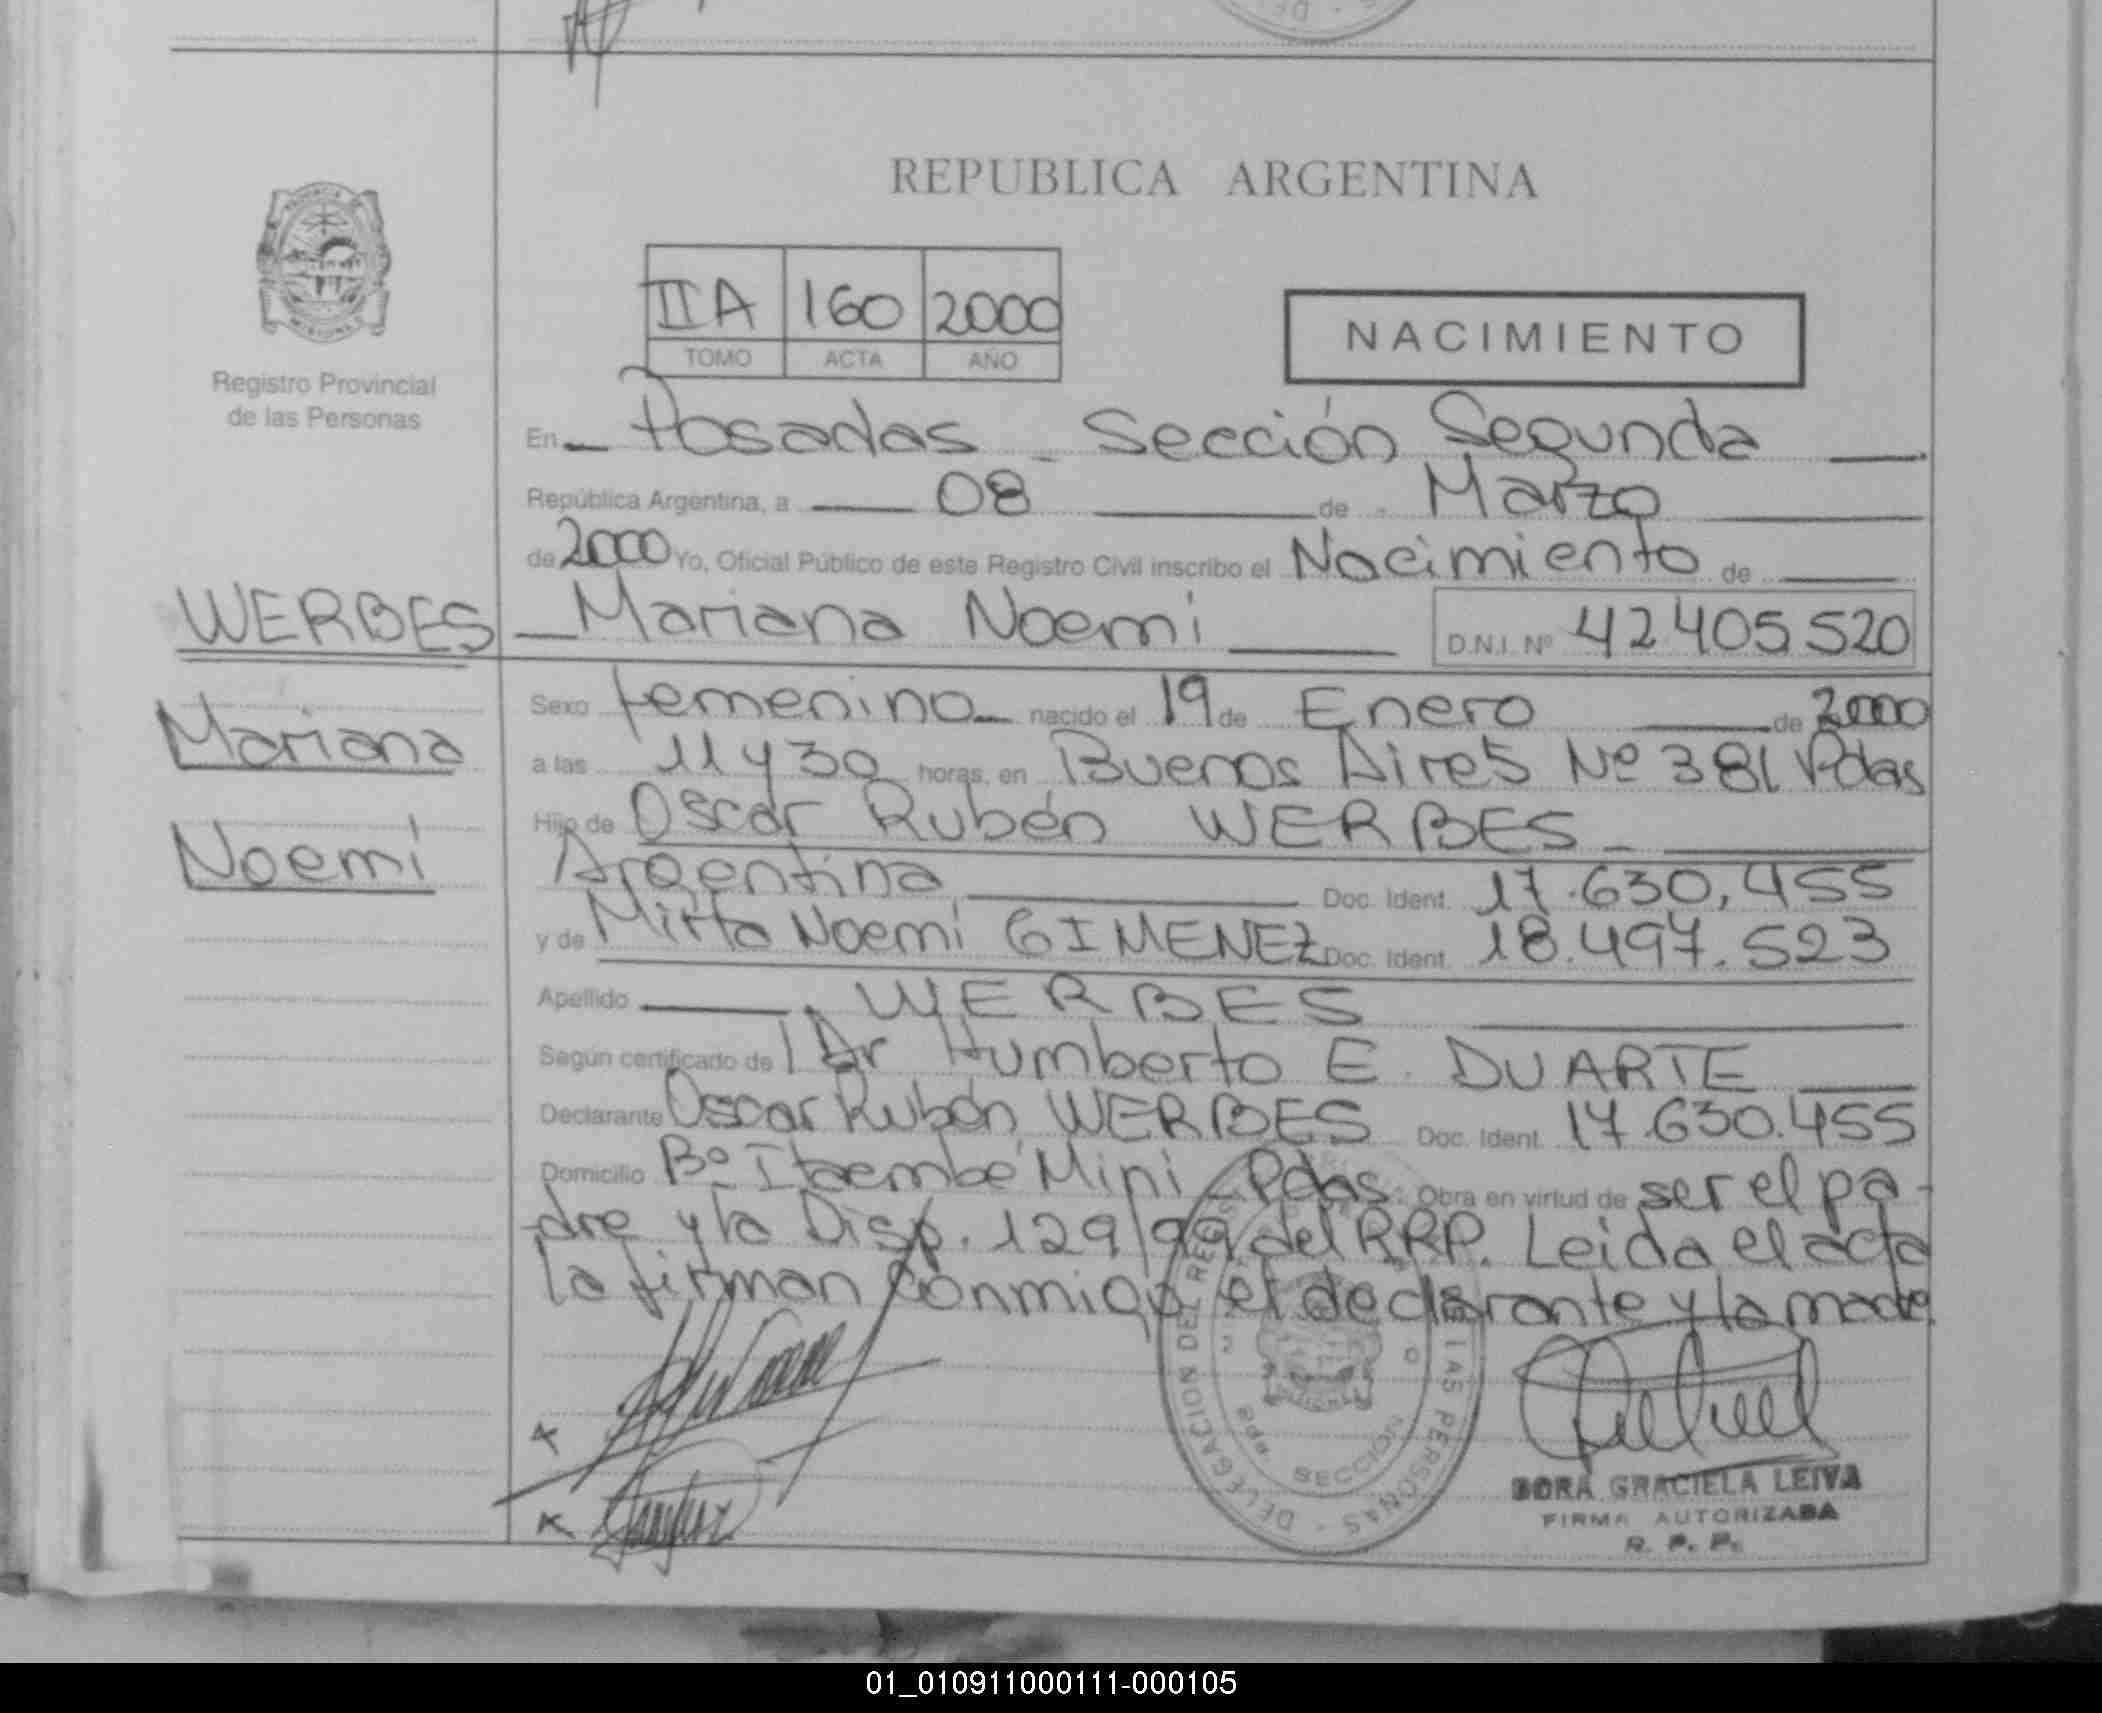 REPUBLICA ARGENTINA
IIA 160 2000
TOMO ACTA AÑO
NACIMIENTO
Registro Provincial
de las Personas
En Posadas - Sección Segunda
República Argentina, a 08 de Marzo
de 2000 Yo, Oficial Público de este Registro Civil inscribo el Nacimiento de
WERBES
Mariana
Noemí
Mariana Noemí D.N.I. Nº 42405520
Sexo femenino nacido el 19 de Enero de 2000
a las 11 y 30 horas, en Buenos Aires Nº 381 Pdas
Hijo de Oscar Rubén WERBES
Argentina Doc. Ident. 17.630.455
y de Mirta Noemí GIMENEZ Doc. Ident. 18.497.523
Apellido WERBES
Según certificado de l Dr Humberto E. DUARTE
Declarante Oscar Rubén WERBES Doc. Ident. 17.630.455
Domicilio Bº Itaembé Mini - Pdas. Obra en virtud de ser el pa-
dre y la Disp. 129/99 del RRP. Leida el acta
la firman conmigo el declarante y la madre
DELEGACION DEL REGISTRO LAS PERSONAS
SECCION
DORA GRACIELA LEIVA
FIRMA AUTORIZADA
R. P. P.
01_010911000111-000105